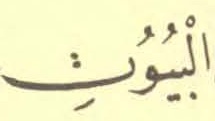 الْبُيُوتِ